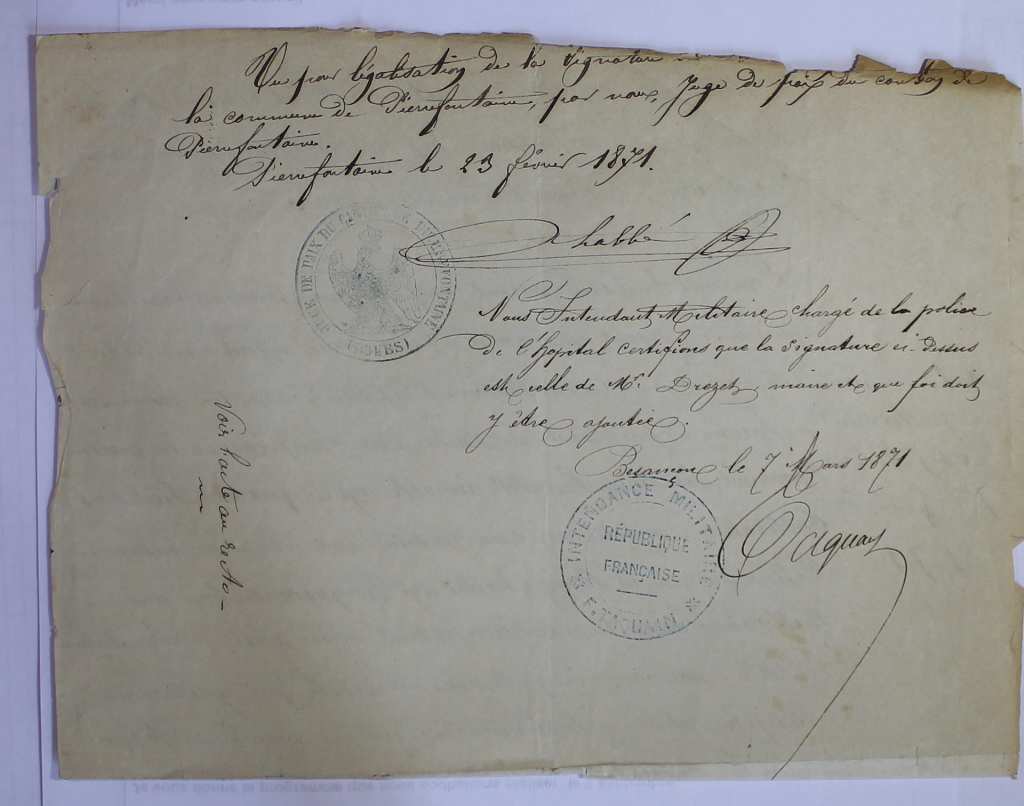 Vu pour légalisation de la signature
la commune de Pierrefontaine, par nous, Juge de paix du canton de
Pierrefontaine.
Pierrefontaine le 23 février 1871.
JUGE DE PAIX DU CANTON DE PIERREFONTAINE
(DOUBS)
Nous Intendant Militaire chargé de la police
de l'hopital certifions que la signature ci-dessus
est celle de Mr. Drezet, maire et que foi doit
y être ajoutée.
Besançon le 7 Mars 1871
INTENDANCE MILITAIRE
RÉPUBLIQUE
FRANÇAISE
Voir l'acte au recto